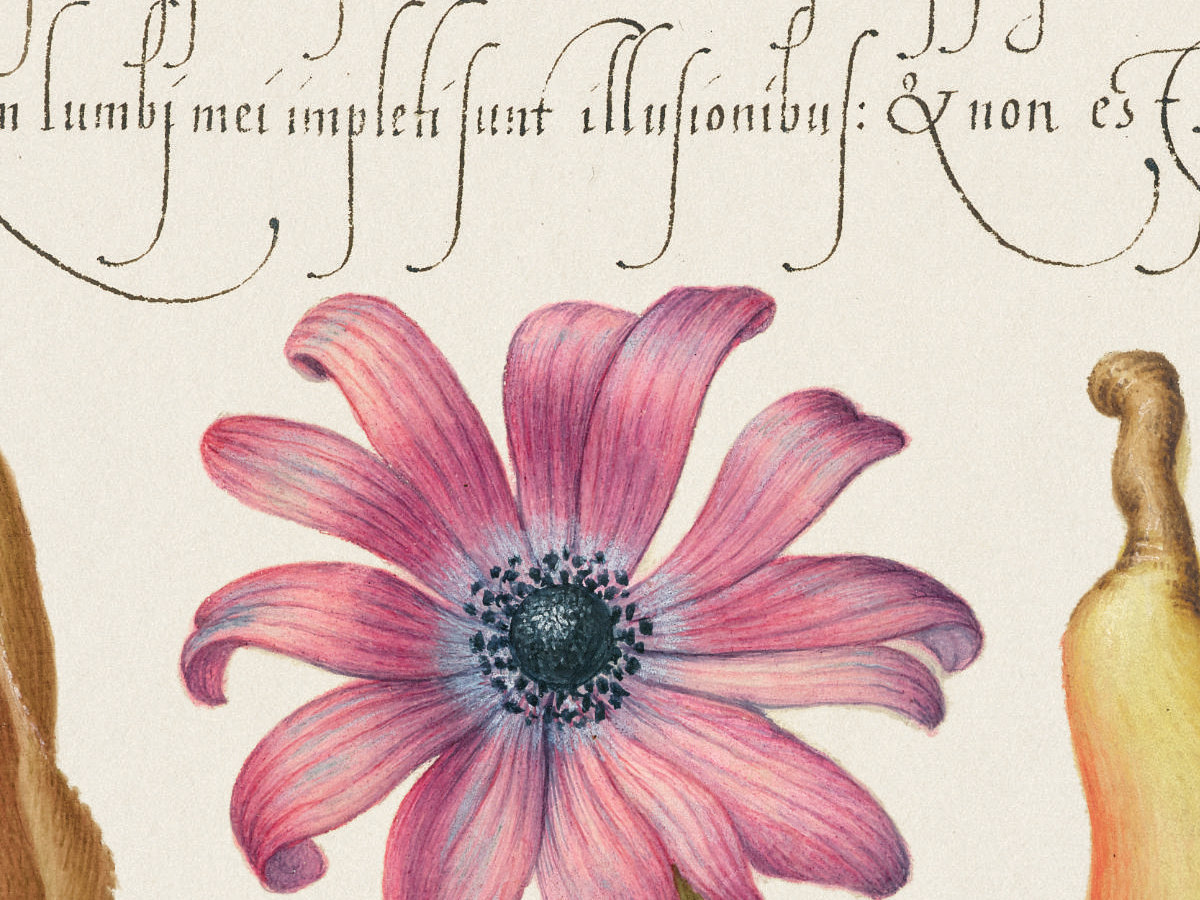 lumbi mei impleti sunt illusionibus: & non est